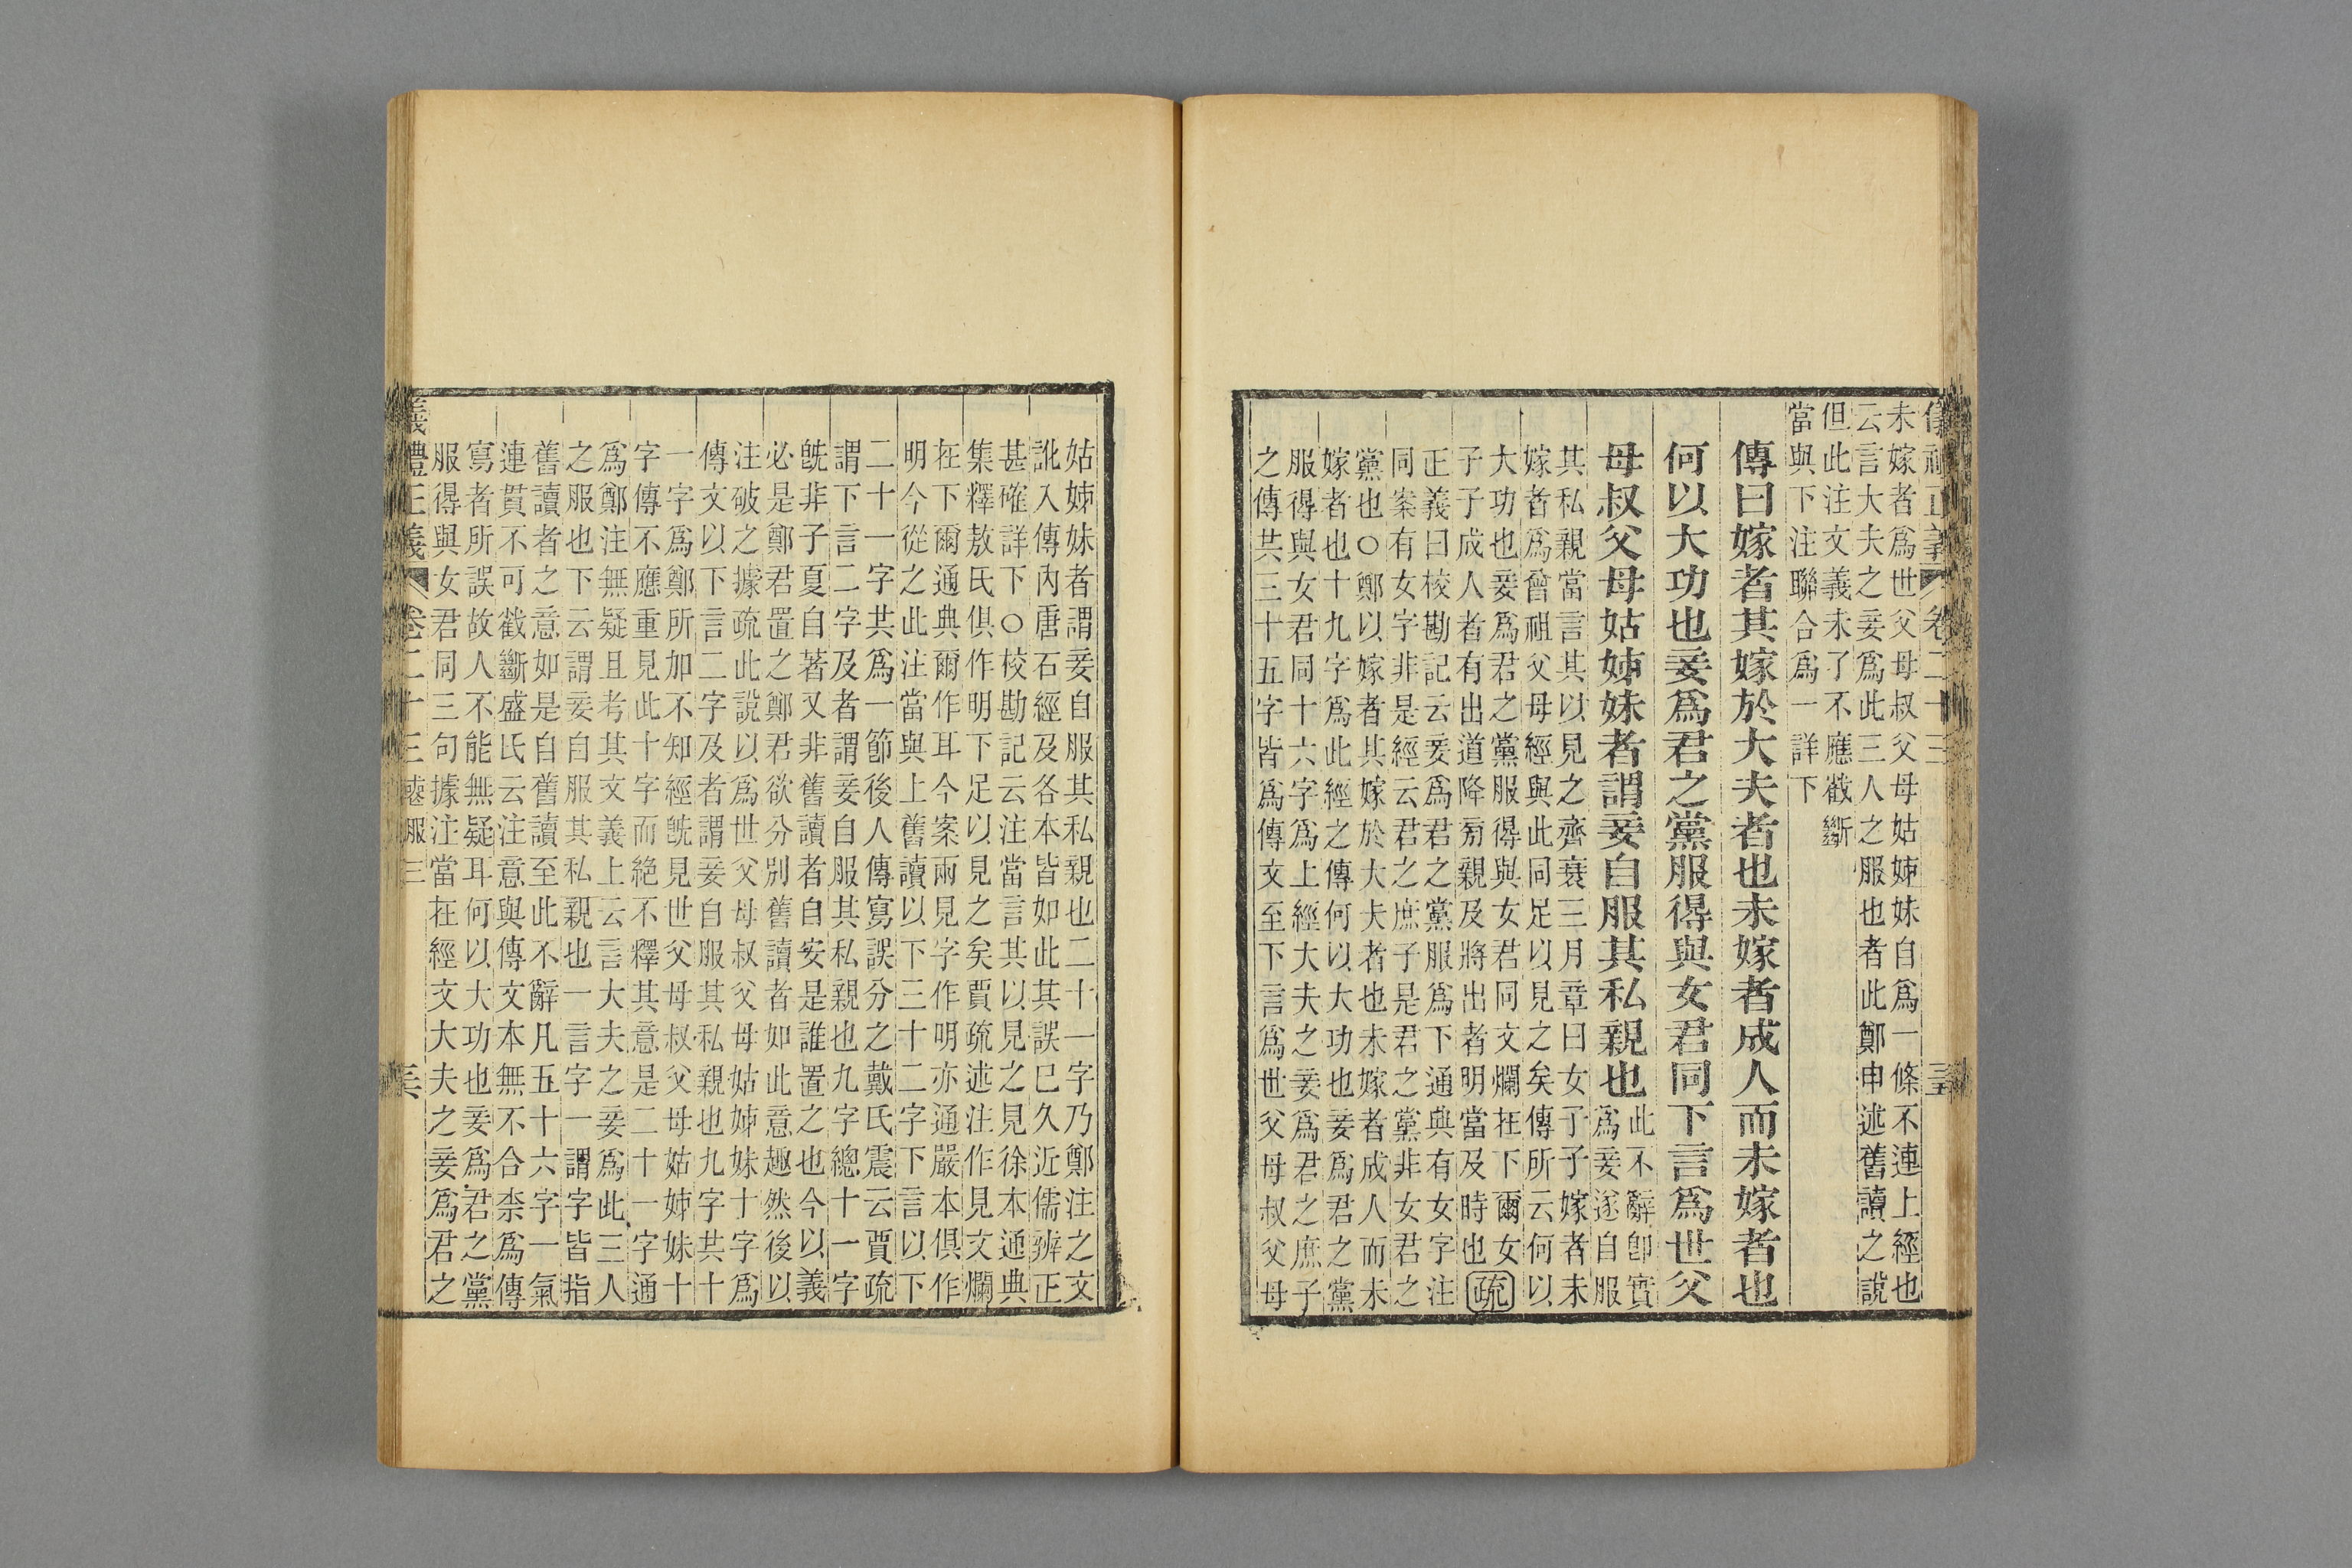 儀禮正義 卷二十三
未嫁者爲世父母叔父母姑姊妹自爲一條不連上經也
云言大夫之妾爲此三人之服也者此鄭申述舊讀之說
但此注文義未了不應截斷
當與下注聯合爲一詳下
傳曰嫁者其嫁於大夫者也未嫁者成人而未嫁者也
何以大功也妾爲君之黨服得與女君同下言爲世父
母叔父母姑姊妹者謂妾自服其私親也
此不辭卽實
爲妾遂自服
其私親當言其以見之齊衰三月章曰女子子嫁者未
嫁者爲曾祖父母經與此同足以見之矣傳所云何以
大功也妾爲君之黨服得與女君同文爛在下爾女
子子成人者有出道降旁親及將出者明當及時也疏
正義曰校勘記云妾爲君之黨服爲下通典有女字注
同案有女字非是經云君之庶子是君之黨非女君之
黨也○鄭以嫁者其嫁於大夫者也未嫁者成人而未
嫁者也十九字爲此經之傳何以大功也妾爲君之黨
服得與女君同十六字爲上經大夫之妾爲君之庶子
之傳共三十五字皆爲傳文至下言爲世父母叔父母
姑姊妹者謂妾自服其私親也二十一字乃鄭注之文
訛入傳內唐石經及各本皆如此其誤已久近儒辨正
甚確詳下○校勘記云注當言其以見之見徐本通典
集釋敖氏俱作明下足以見之矣賈疏述注作見文爛
在下爾通典爾作耳今案兩見字作明亦通嚴本俱作
明今從之此注當與上舊讀以下三十二字下言以下
二十一字共爲一節後人傳寫誤分之戴氏震云賈疏
謂下言二字及者謂妾自服其私親也九字總十一字
旣非子夏自著又非舊讀者自安是誰置之也今以義
必是鄭君置之鄭君欲分別舊讀者如此意趣然後以
注破之據疏此說以爲世父母叔父母姑姊妹十字爲
傳文以下言二字及者謂妾自服其私親也九字共十
一字爲鄭所加不知經旣見世父母叔父母姑姊妹十
字傳不應重見此十字而絕不釋其意是二十一字通
爲鄭注無疑且考其文義上云言大夫之妾爲此三人
之服也下云謂妾自服其私親也一言字一謂字皆指
舊讀者之意如是自舊讀至此不辭凡五十六字一氣
連貫不可截斷盛氏云注意與傳文本無不合柰爲傳
寫者所誤故人不能無疑耳何以大功也妾爲君之黨
服得與女君同三句據注當在經文大夫之妾爲君之
儀禮正義 卷二十三 喪服三